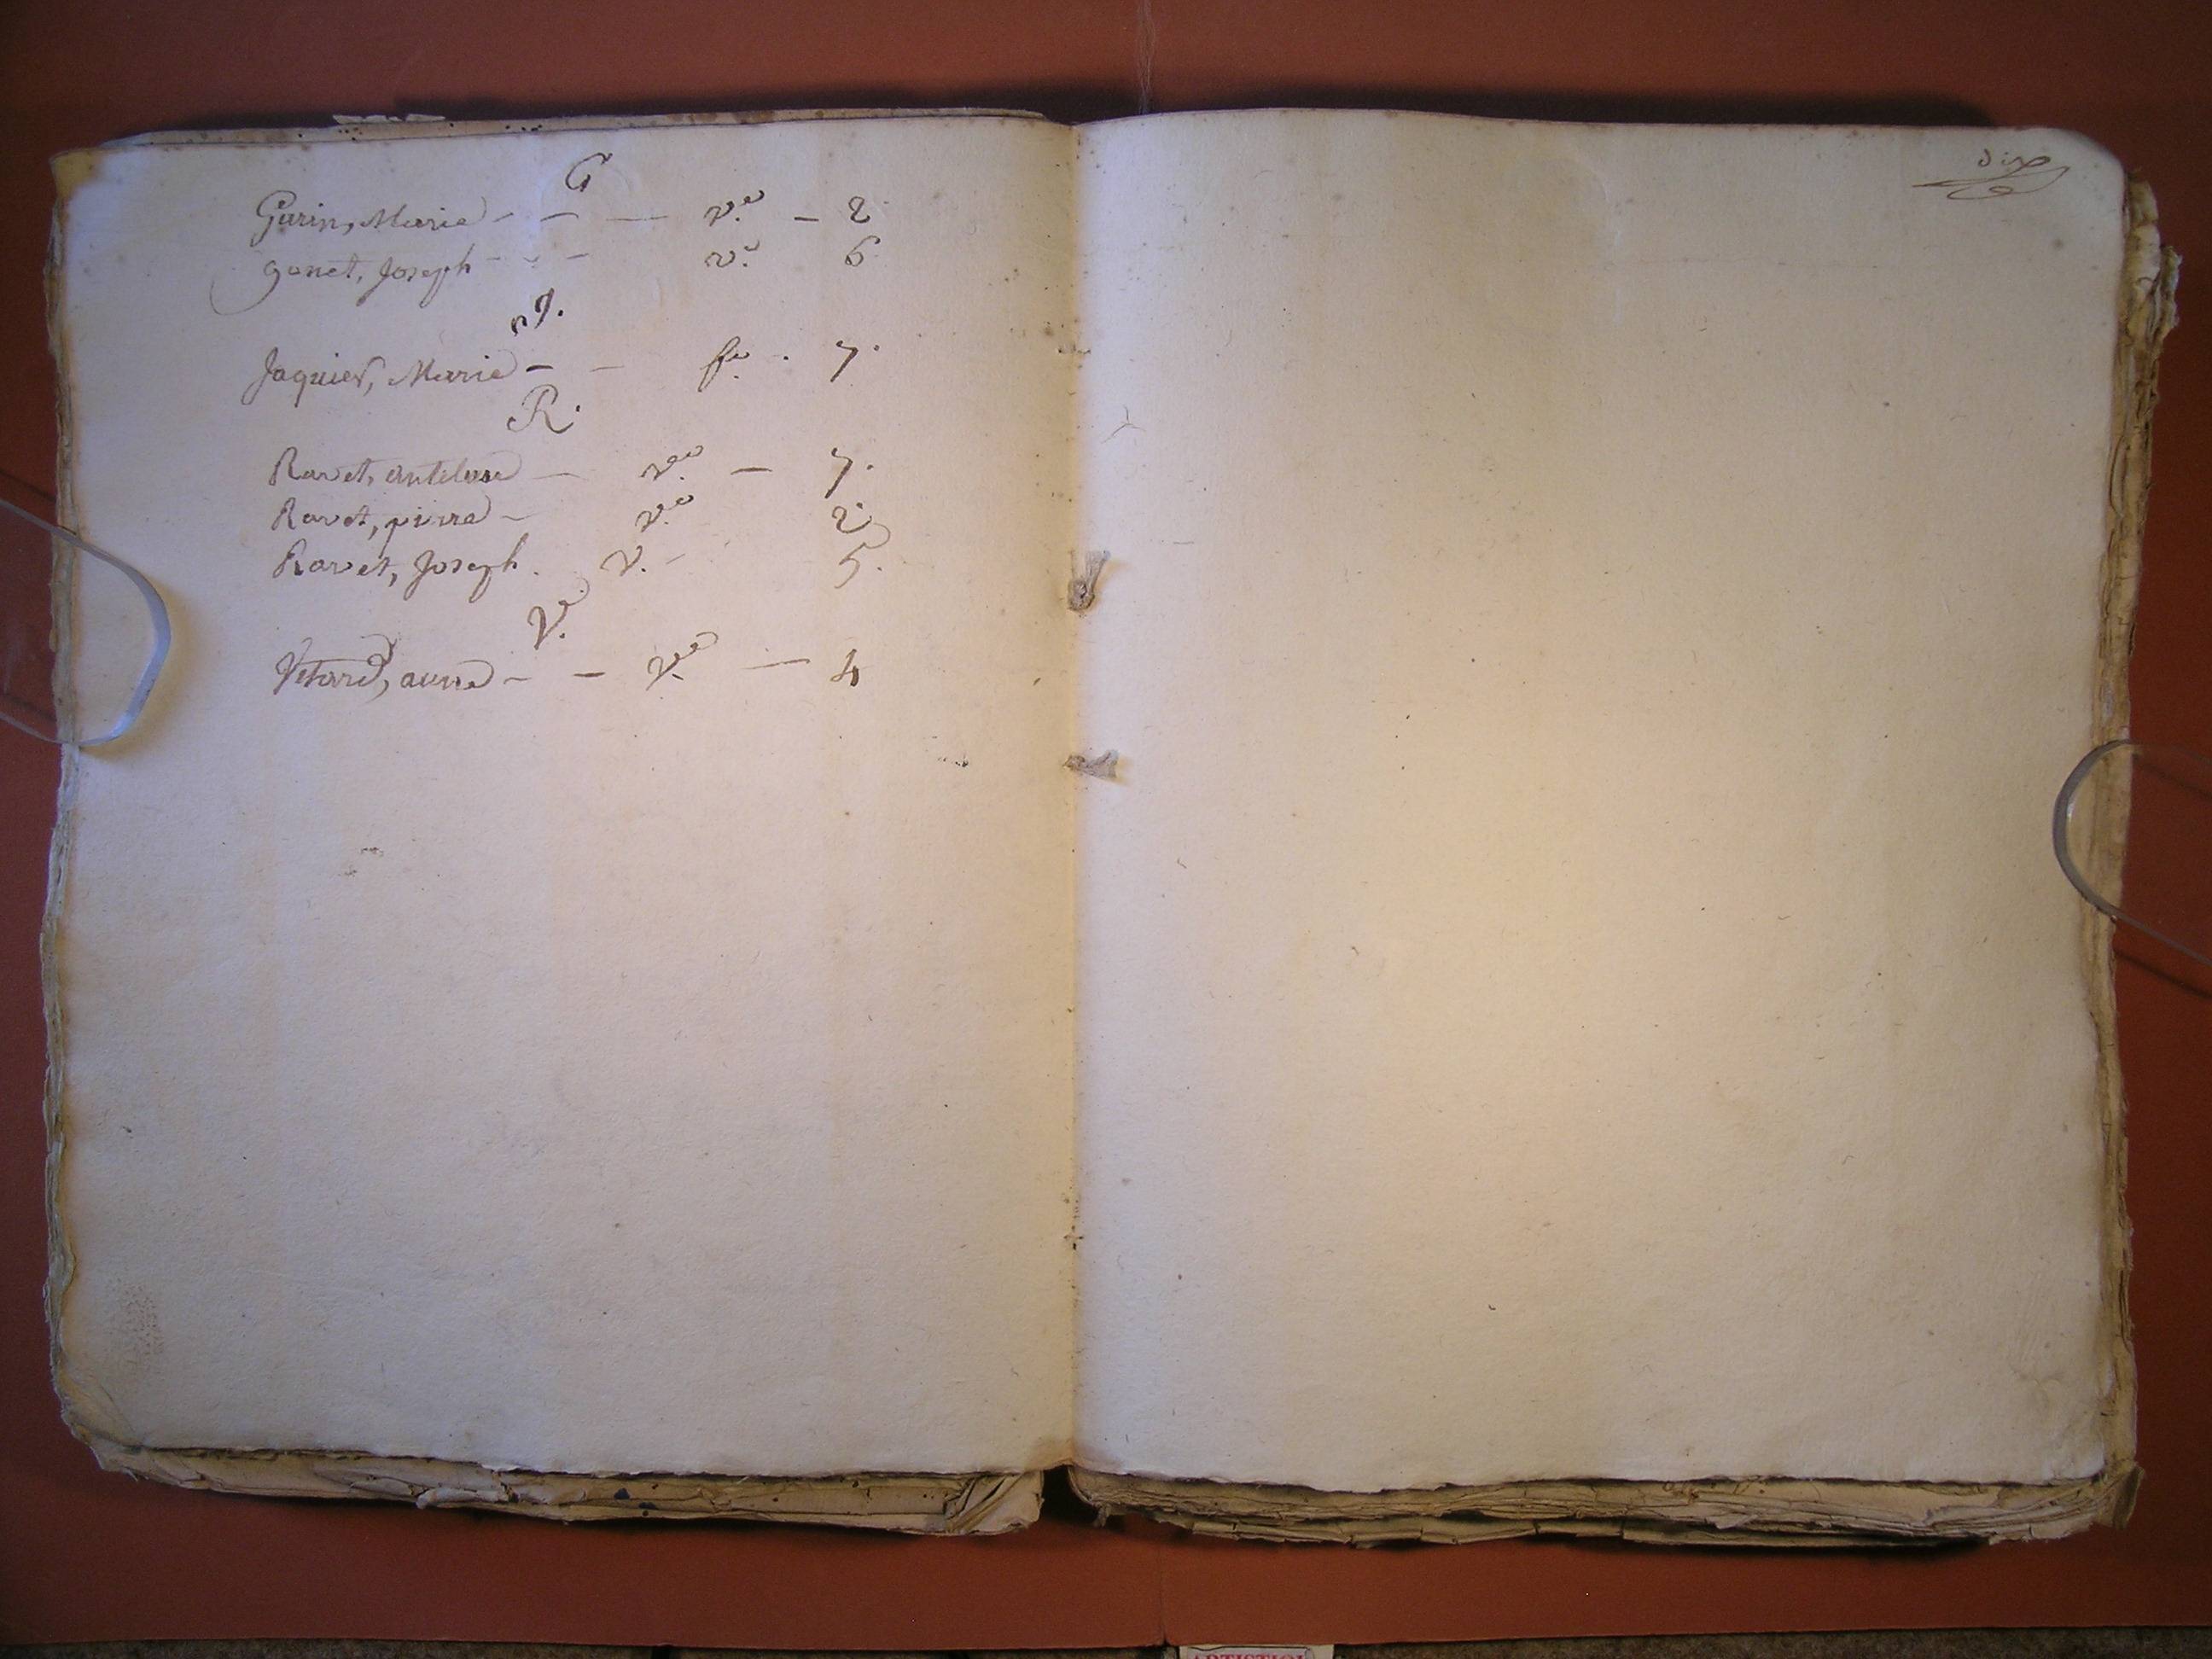 G
Gurin, Marie - - - v.e - 2
gonet, Joseph - - - v.o 6
J.
Jaquier, Marie - - f.o . 7.
R.
Ravet, antelme - v.o - 7.
Ravet, pierre - v.o 2.
Ravet, Joseph. v. - 5.
V.
Vitard, anne - - v.o - 4
dix